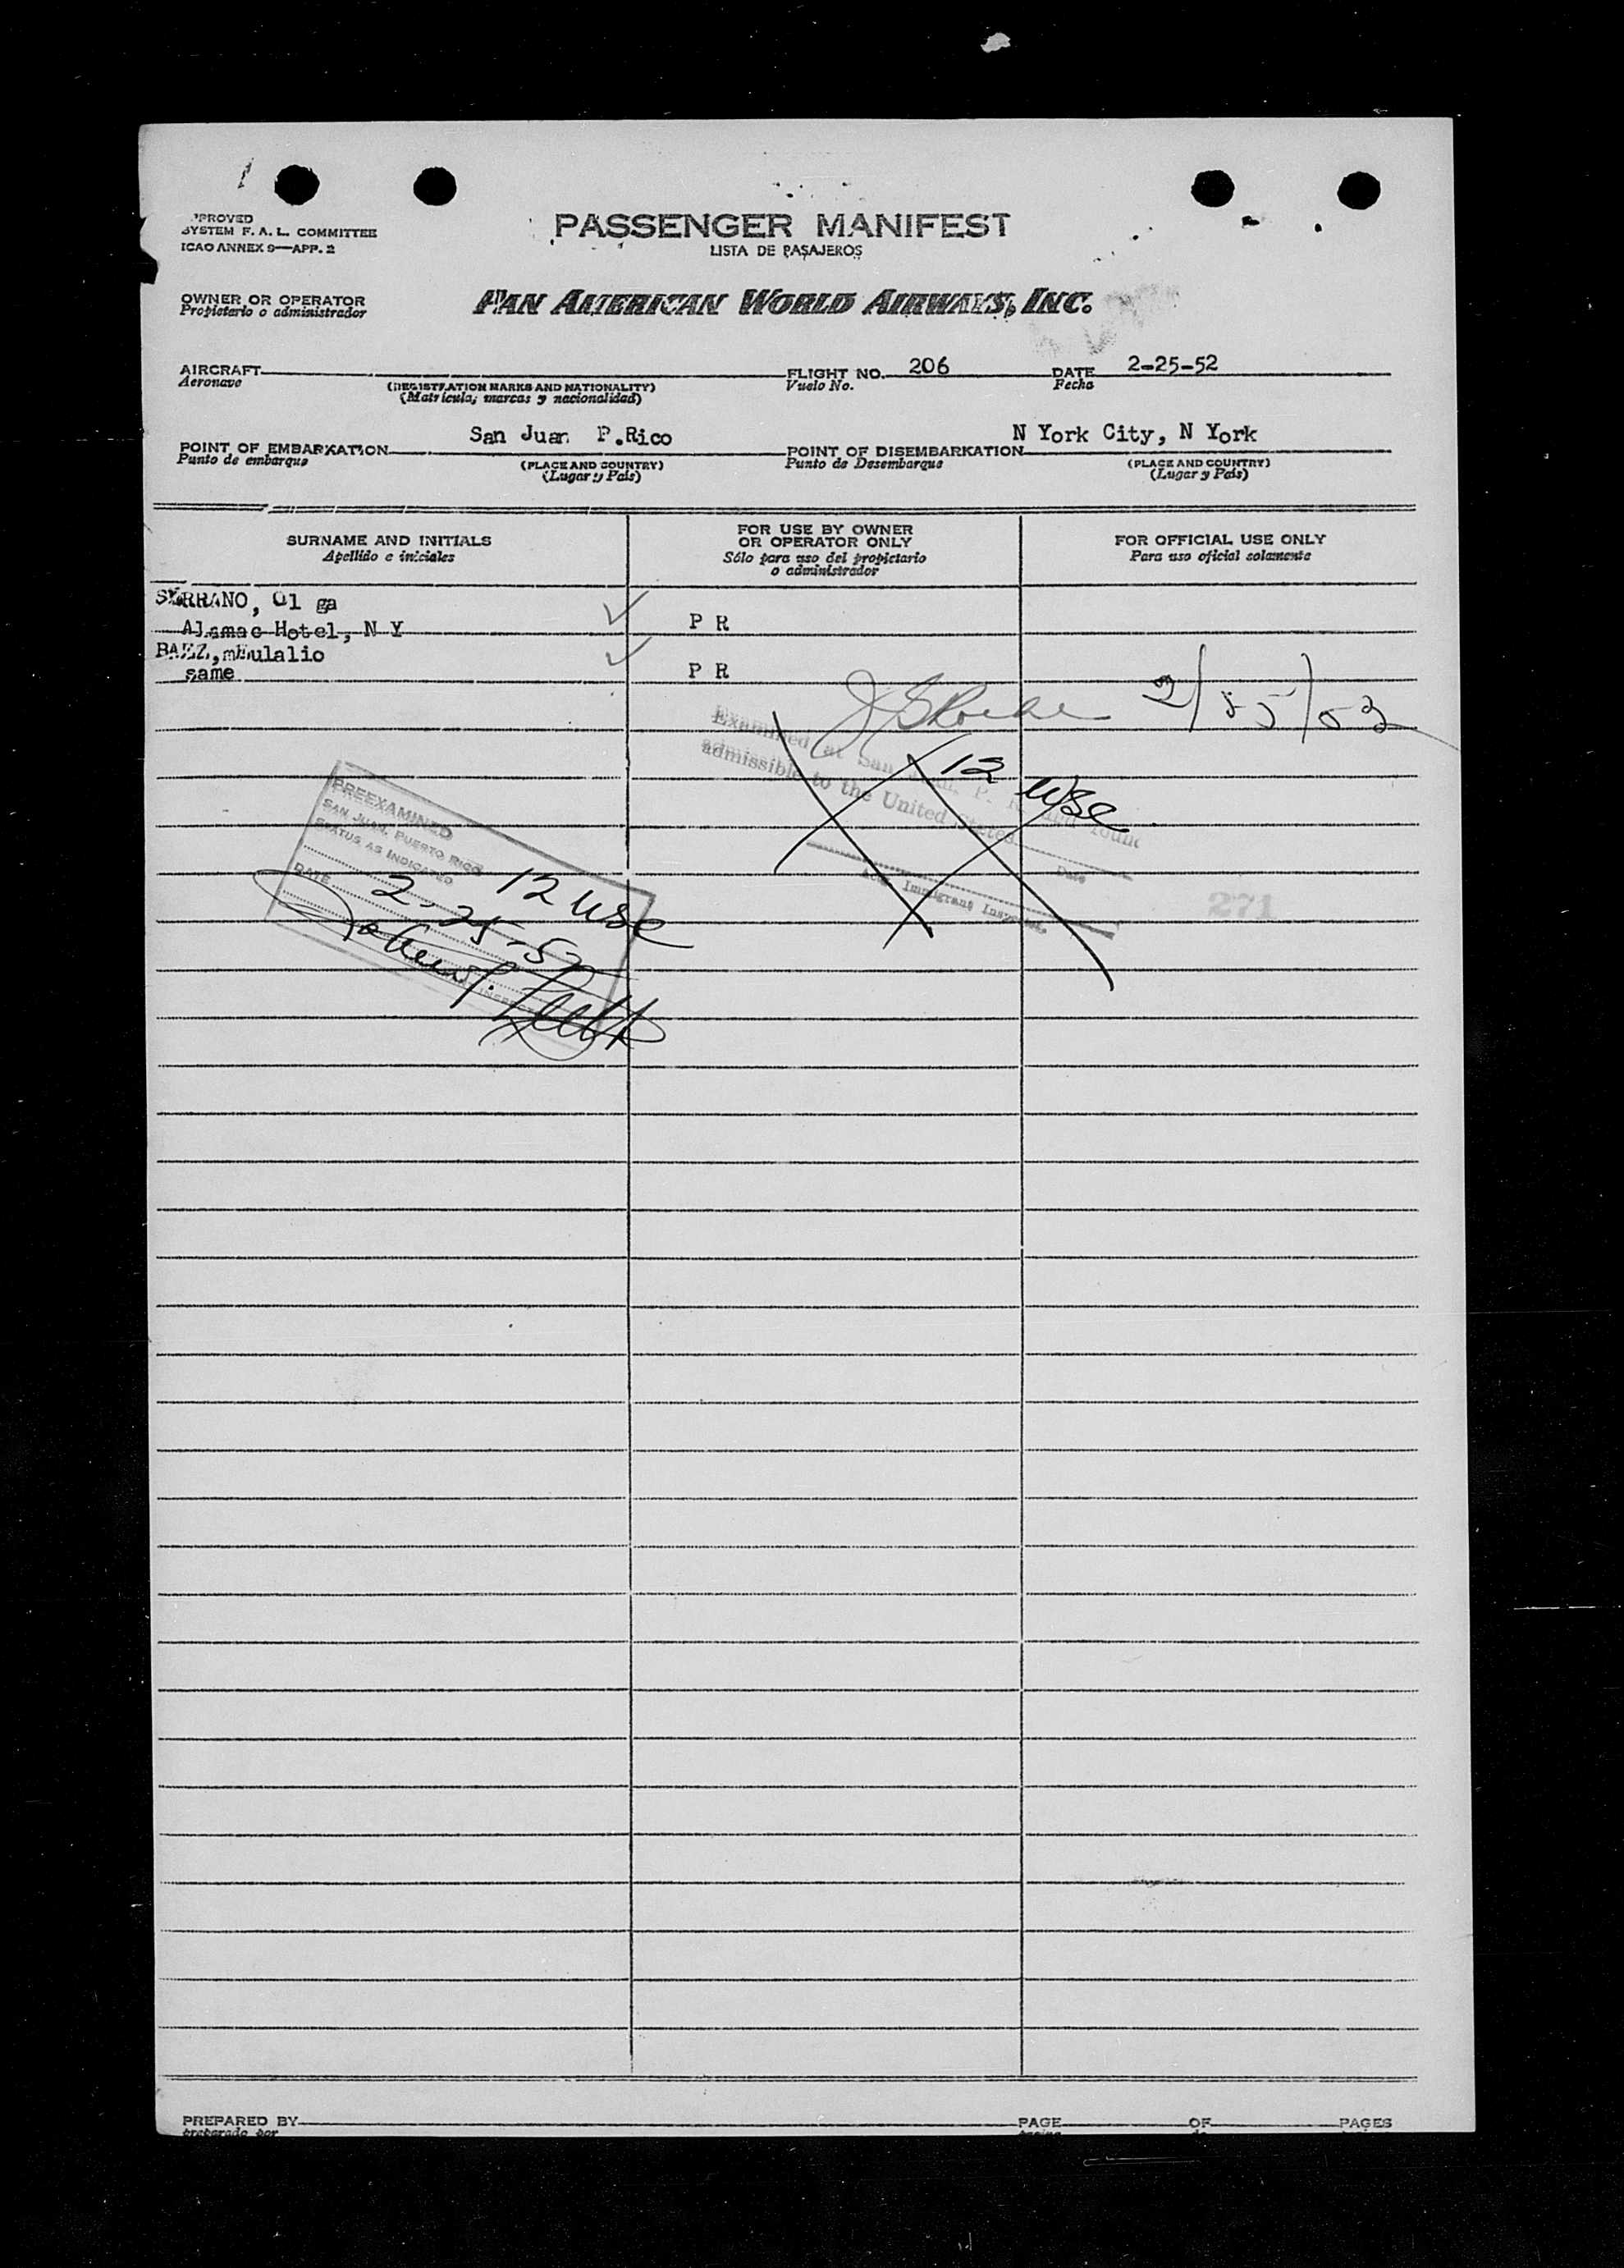 PROVED
SYSTEM F. A. L. COMMITTEE
ICAO ANNEX 9—APP. 2
PASSENGER MANIFEST
LISTA DE PASAJEROS
OWNER OR OPERATOR
Propietario o administrador
PAN AMERICAN WORLD AIRWAYS, INC.
AIRCRAFT
Aeronave
(REGISTRATION MARKS AND NATIONALITY)
(Matrícula, marcas y nacionalidad)
FLIGHT NO. 206
Vuelo No.
DATE 2-25-52
Fecha
POINT OF EMBARKATION San Juan P.Rico
Punto de embarque
(PLACE AND COUNTRY)
(Lugar y País)
POINT OF DISEMBARKATION N York City, N York
Punto de Desembarque
(PLACE AND COUNTRY)
(Lugar y País)
SURNAME AND INITIALS
Apellido e iniciales
FOR USE BY OWNER
OR OPERATOR ONLY
Sólo para uso del propietario
o administrador
FOR OFFICIAL USE ONLY
Para uso oficial solamente
SERRANO, Ol ga
Alamac Hotel, N Y
P R
BAEZ,mEulalio
same
P R
Examined at San Juan, P. R. and found
admissible to the United States
Date
Immigrant Inspector
12 USC
271
PREEXAMINED
SAN JUAN, PUERTO RICO
STATUS AS INDICATED
12 USC
DATE 2-25-5
PREPARED BY
preparado por
PAGE
OF
PAGES